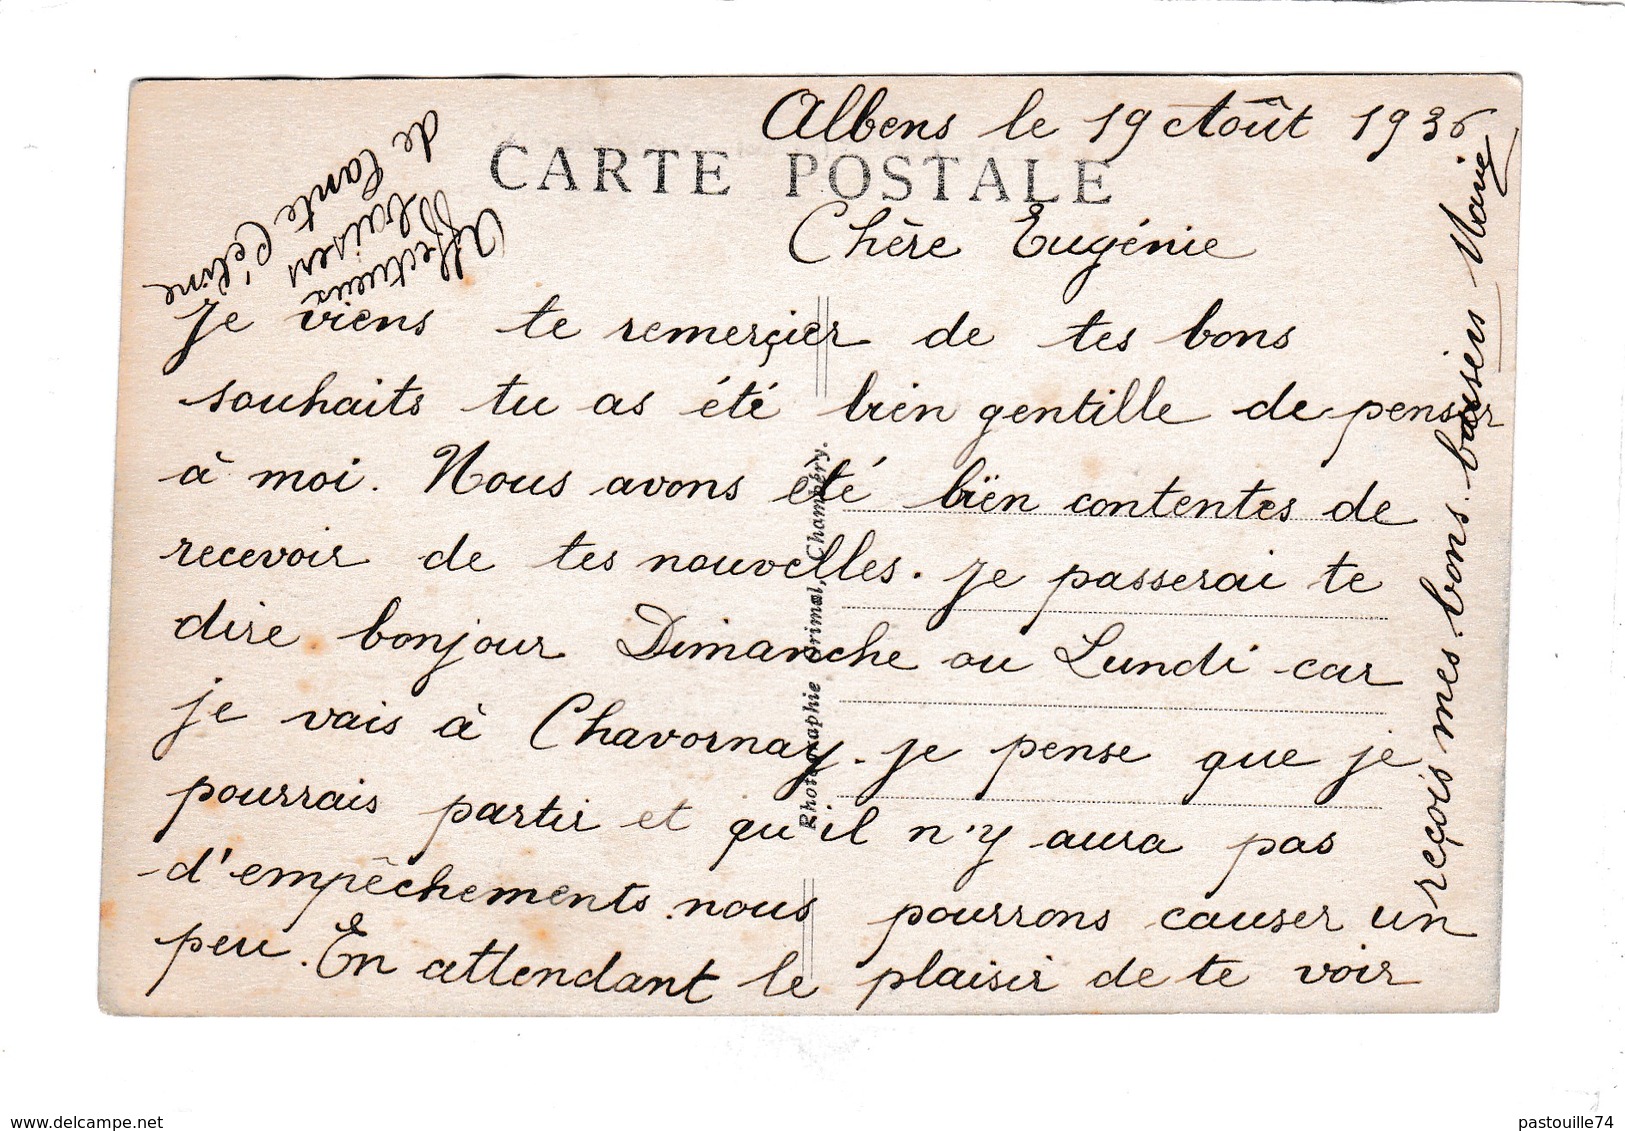 Albens le 19 Août 1936
CARTE POSTALE
Chère Eugénie
Je viens te remerçier de tes bons
souhaits tu as été bien gentille de penser
à moi. Nous avons été bien contentes de
recevoir de tes nouvelles. Je passerai te
dire bonjour Dimanche ou Lundi car
je vais à Chavornay. Je pense que je
pourrais partir et qu'il n'y aura pas
d'empêchements nous pourrons causer un
peu. En attendant le plaisir de te voir
reçois mes bons baisers Marie
Affectueux
baisers
de tante Céline
Photographie Grimal, Chambéry.
www.delcampe.net
pastouille74